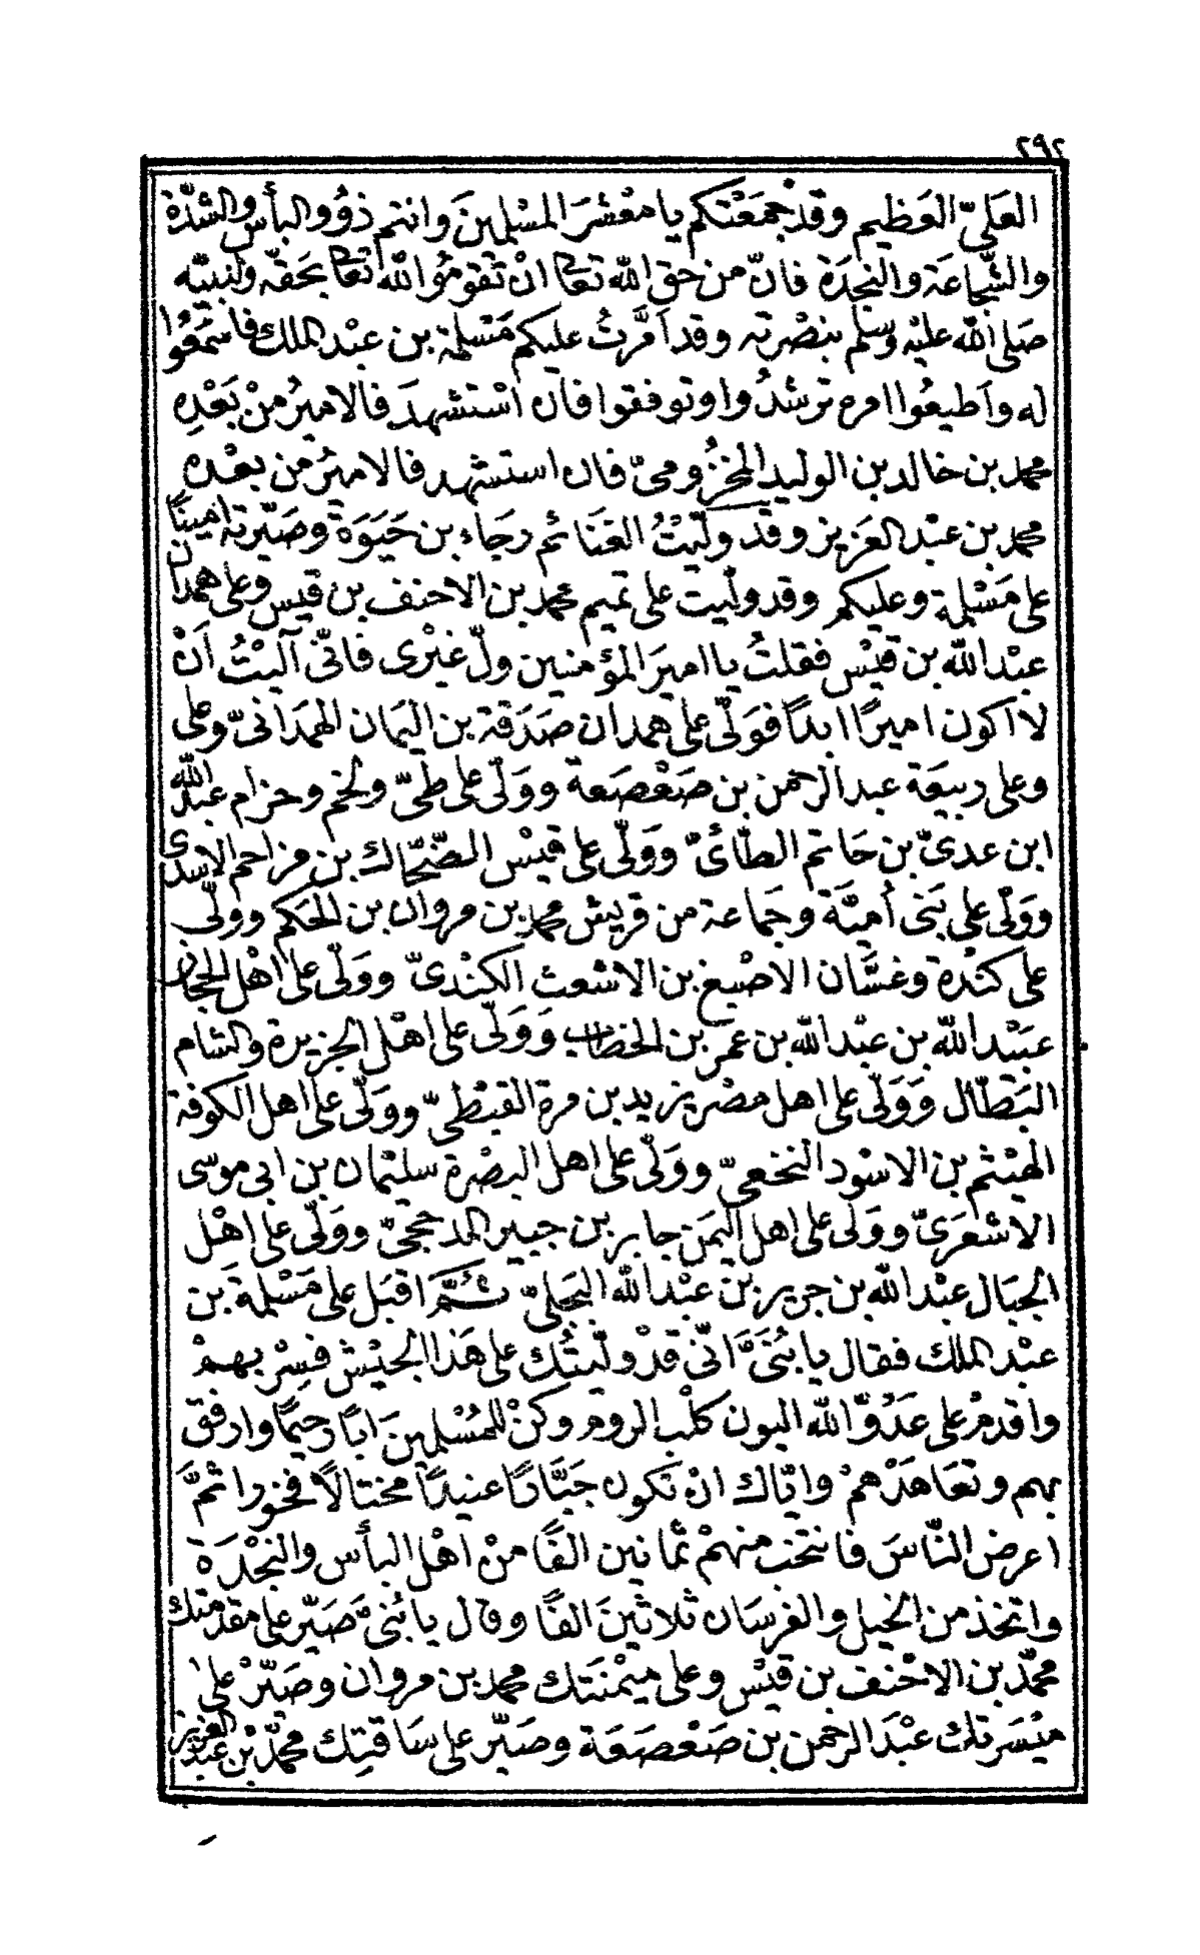 ٢٩٢
العَليّ العَظيم وقد جمعْتكم يا معْشرَ المسْلمينَ وانتم ذوُو البأس والشدّة
والشّجاعَة والنجدَة فانّ من حق الله تعالى انْ تقومُوا لله تعالى بحَقّه ولنبيّه
صَلى الله عليْه وسلم بنصْرته وقد اَمَّرتُ عليكم مَسْلمة بن عبْد الملك فاسْمَعُوا
له واَطيعُوا امره ترشدُوا وتوفقوا فان اسْتشهدَ فالامير منْ بَعْدِه
محمد بن خالد بن الوليد المخزُومىّ فان استشهد فالاميرُ من بعْده
محمد بن عبْد العَزيز وقد ولّيْتُ الغَنائم رجَاء بن حَيَوَة وصَيّرته امينًا
على مَسْلمة وعليكم وقد وليت على تميم محمد بن الاحنف بن قيس وعلى همدان
عبْد الله بن قيْس فقلتُ يا اميرَ المؤمنين ولّ غيْرى فانّى آليْتُ اَنْ
لا اكون اميرًا ابدًا فوَلّى على همدان صَدَقة بن اليمَان الهمَدَانىّ وعلى
وعلى ربيعَة عبد الرحمن بن صَعْصَعة ووَلّى على طىّ ولخم وحزام عبد الله
ابن عدىّ بن حَاتم الطّائىّ ووَلّى على قيْس الضّحّاك بن مزاحم الاسدى
ووَلّى على بَنى أميَّة وجَماعة من قريش محمد بن مروان بن الحَكم وولّى
على كنْدة وغسَّان الاصْبغ بن الاشعث الكنْدىّ ووَلّى على اهْل الحجاز
عبيْد الله بن عبْد الله بن عمر بن الخطاب وَوَلّى على اهْل الجزيرة والشام
البَطّال وَوَلّى على اهل مصْر يزيد بن مرة القبْطىّ ووَلّى على اهل الكوفة
الهيْثم بن الاسْود النخعىّ ووَلّى على اهل البصْرة سليْمان بن ابى موسى
الاشعَرىّ ووَلّى على اهل اليَمَن جابر بن جبير المدحجىّ ووَلّى على اهْل
الجبَال عبْد الله بن جرير بن عبْد الله البَجلىّ ثمَّ اقبَل على مَسْلمة بَن
عبْد الملك فقال يا بُنَىَّ انّى قدْ ولّيتُك على هَذا الجيْش فسِرْ بهمْ
واقدمْ على عَدُوّ الله اليون كلْب الروم وكنْ للمُسْلمينَ ابًا رحيمًا وارفق
بهم وتعَاهَدْهمْ وايّاك انْ تكون جَبَّارًا عنيدًا مختالًا فخورا ثمَّ
اعرض النّاسَ فانتخب منهمْ ثمانين الفًا منْ اهْل البأس والنجْدَة
واتخذ من الخيل والفرسَان ثلاثينَ الفًا وقال يا بُنىَّ صَيّر على مقدمتك
محمّد بن الاحْنف بن قيْس وعلى ميْمنَتك محمد بن مروان وصَيّرْ على
ميْسَرتك عبْدَ الرحمن بن صَعْصَعَة وصَيّر على سَاقتِك محمّد بْن عبْد العزيز